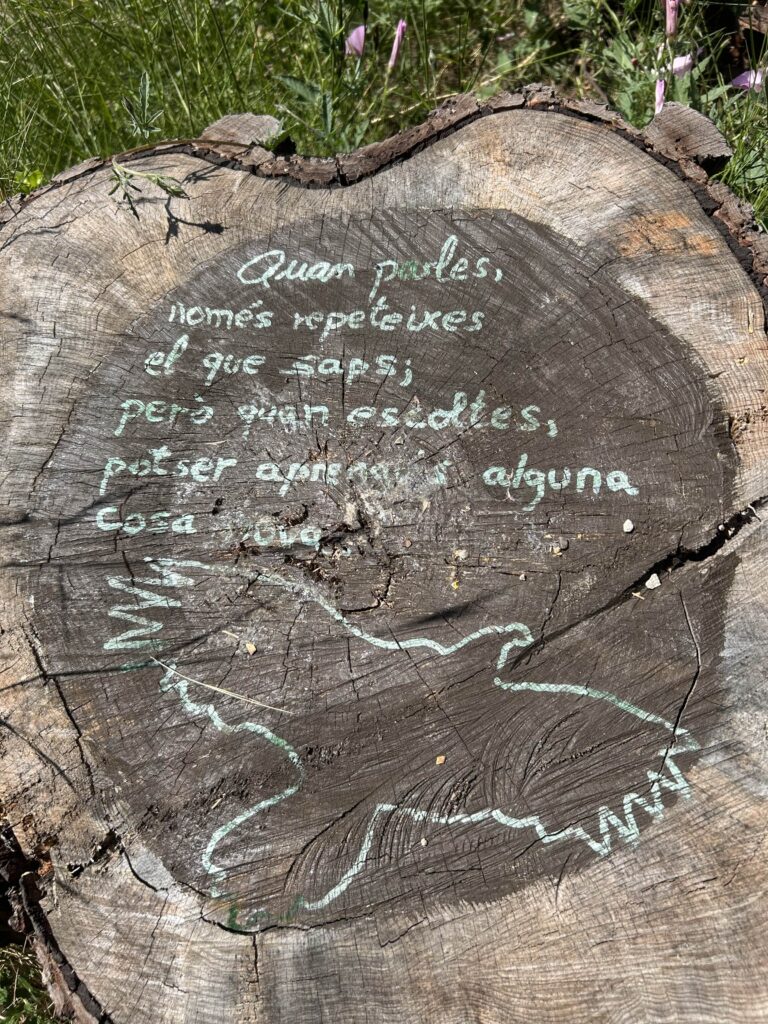 Quan parles,
només repeteixes
el que saps;
però quan escoltes,
potser aprenguis alguna
Cosa nova